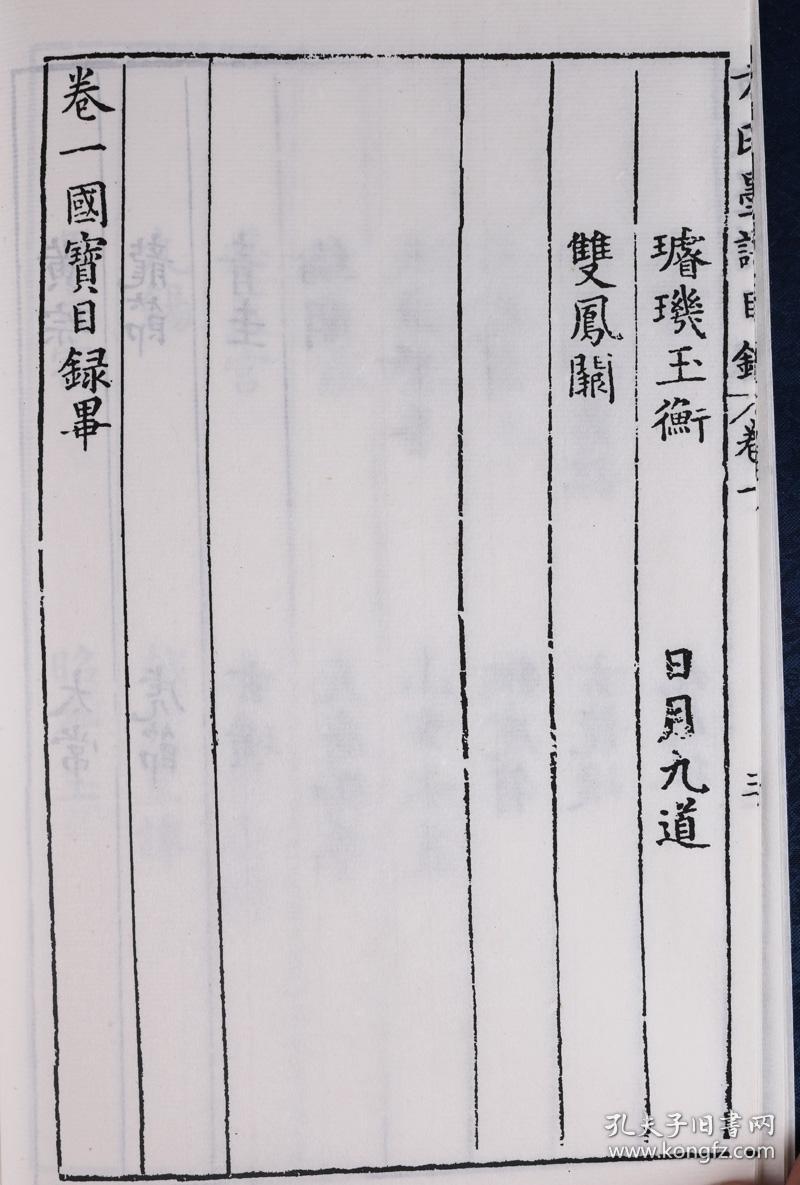 方氏墨譜目録 卷一 三
璿璣玉衡 日月九道
雙鳳闕
卷一國寶目録畢
孔夫子旧書网
www.kongfz.com